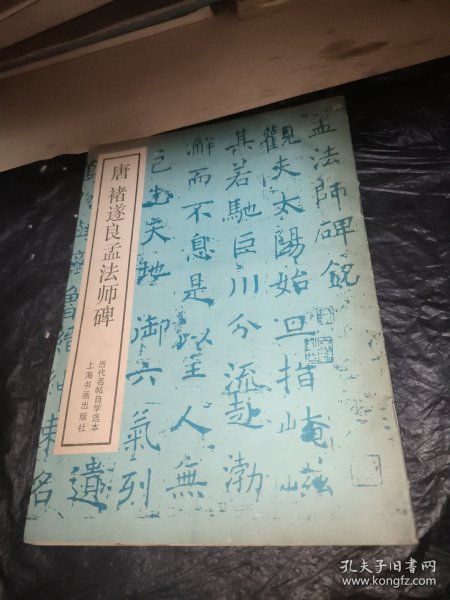 孟法師碑銘
觀夫太陽始旦指崦嵫
其若馳巨川分流赴渤
澥而不息是以至人無
天地御六氣列
遺
名
唐 褚遂良孟法师碑
历代名帖自学选本
上海书画出版社
孔夫子旧书网
www.kongfz.com